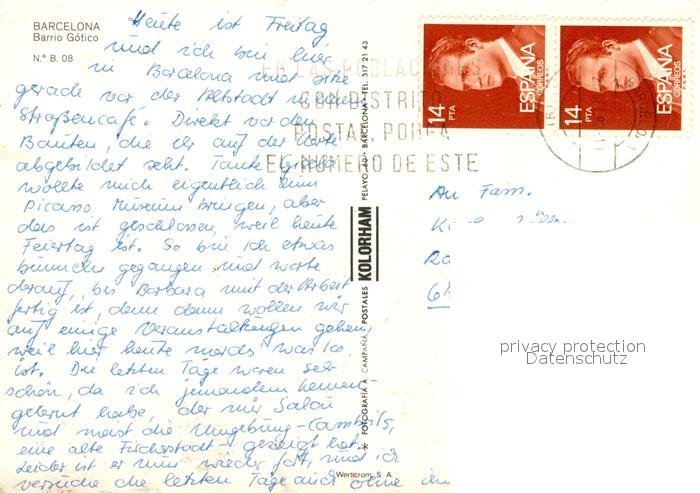 BARCELONA
Barrio Gótico
N.º B. 08
Heute ist Freitag
und ich bin hier
in Barcelona und sitze
gerade vor der Altstadt in einem
Straßencafé. Direkt vor den
Bauten, die ihr auf der Karte
abgebildet seht. Tante
wollte mich eigentlich zum
Picasso Museum bringen, aber
das ist geschlossen, weil heute
Feiertag ist. So bin ich etwas
bummeln gegangen und warte
darauf, bis Barbara mit der Arbeit
fertig ist, denn dann wollen wir
auf einige Veranstaltungen gehen,
weil hier heute nachts was los
ist. Die letzten Tage waren sehr
schön, da ich jemandem kennen-
gelernt habe, der mir Salou
und meist die Umgebung - Cambrils,
eine alte Fischerstadt - gezeigt hat.
Leider ist er nun wieder fort, und ich
versuche die letzten Tage auch ohne ihn
EN LAS POBLACIONES
CON DISTRITO
POSTAL PONGA
EL NUMERO DE ESTE
14 PTA
ESPAÑA
CORREOS
14 PTA
ESPAÑA
CORREOS
FOTOGRAFIA A. CAMPAÑÁ POSTALES KOLORHAM PELAYO, 60 - BARCELONA - TEL. 317 21 43
Werticrom, S. A.
An Fam.
privacy protection
Datenschutz